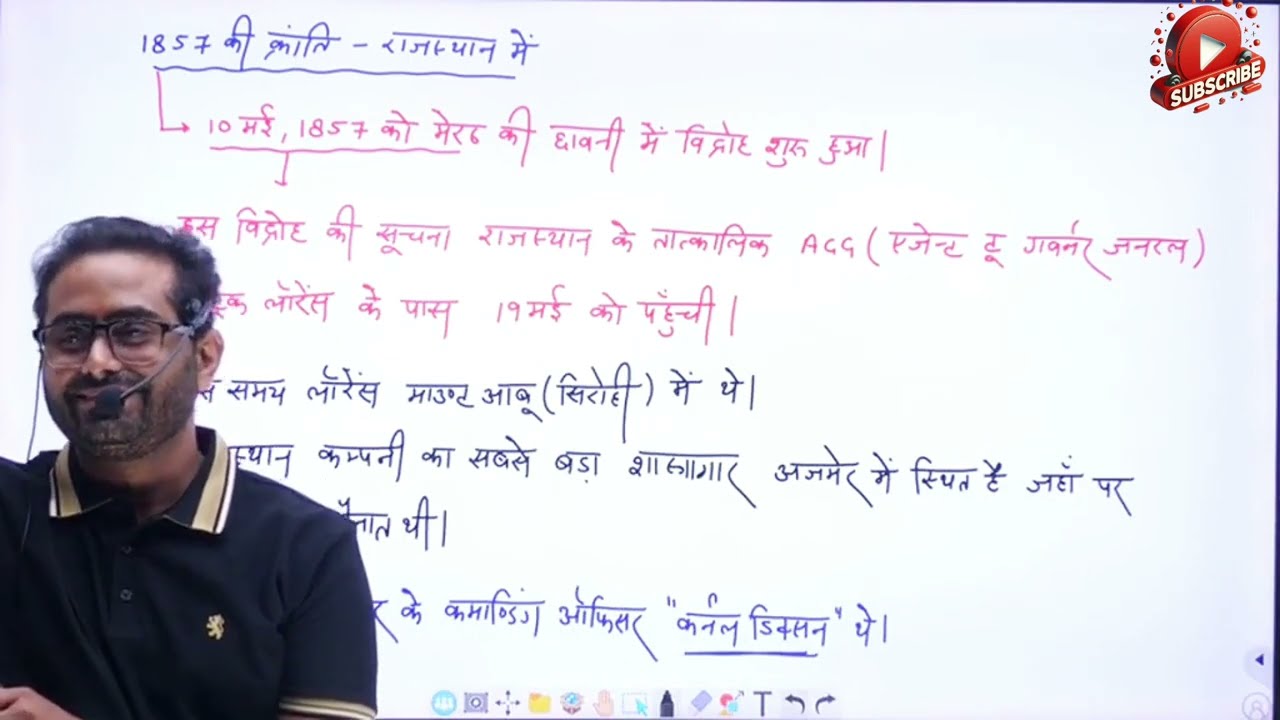 1857 की क्रांति - राजस्थान में
SUBSCRIBE
→ 10 मई, 1857 को मेरठ की छावनी में विद्रोह शुरू हुआ।
इस विद्रोह की सूचना राजस्थान के तात्कालिक AGG (एजेन्ट टू गवर्नर जनरल)
लॉरेंस के पास 19 मई को पहुँची।
समय लॉरेंस माउण्ट आबू (सिरोही) में थे।
कम्पनी का सबसे बड़ा शास्त्रागार अजमेर में स्थित है जहाँ पर
थी।
के कमाण्डिंग ऑफिसर "कर्नल डिक्सन" थे।